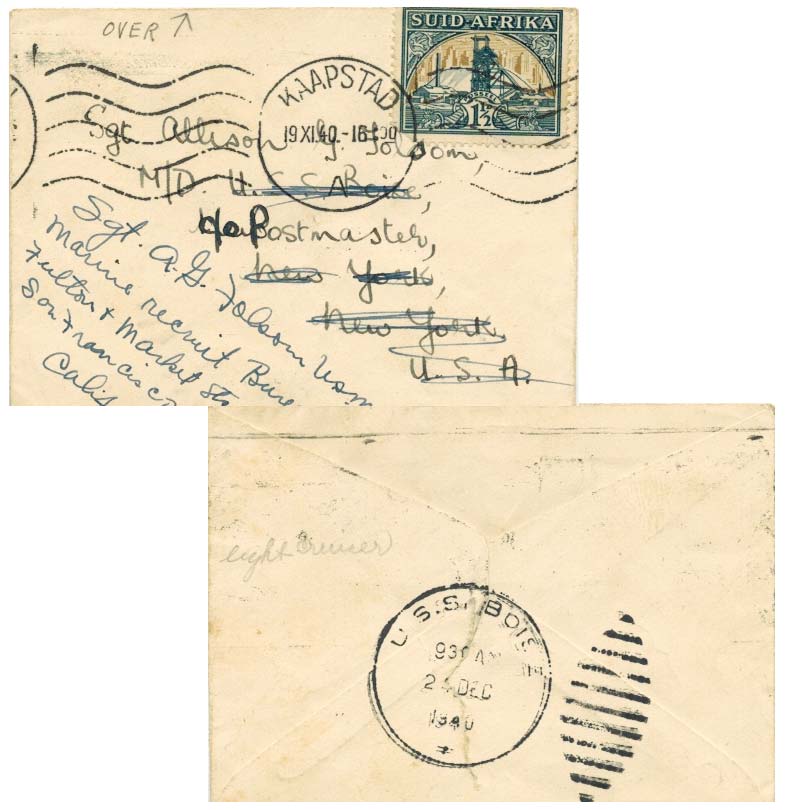 OVER ↗
SUID-AFRIKA
1½
KAAPSTAD
19 XI.40.-16
A
Sgt Allison G Folsom,
M/D U.S.S. Boise,
c/o Postmaster,
New York,
New York,
U.S.A.
Sgt. A.G. Folsom USM
Marine recruit Bure
Fulton & Market Sts
San Francisco
Calif
light cruiser
U.S.S. BOISE
930 AM
24 DEC
1940